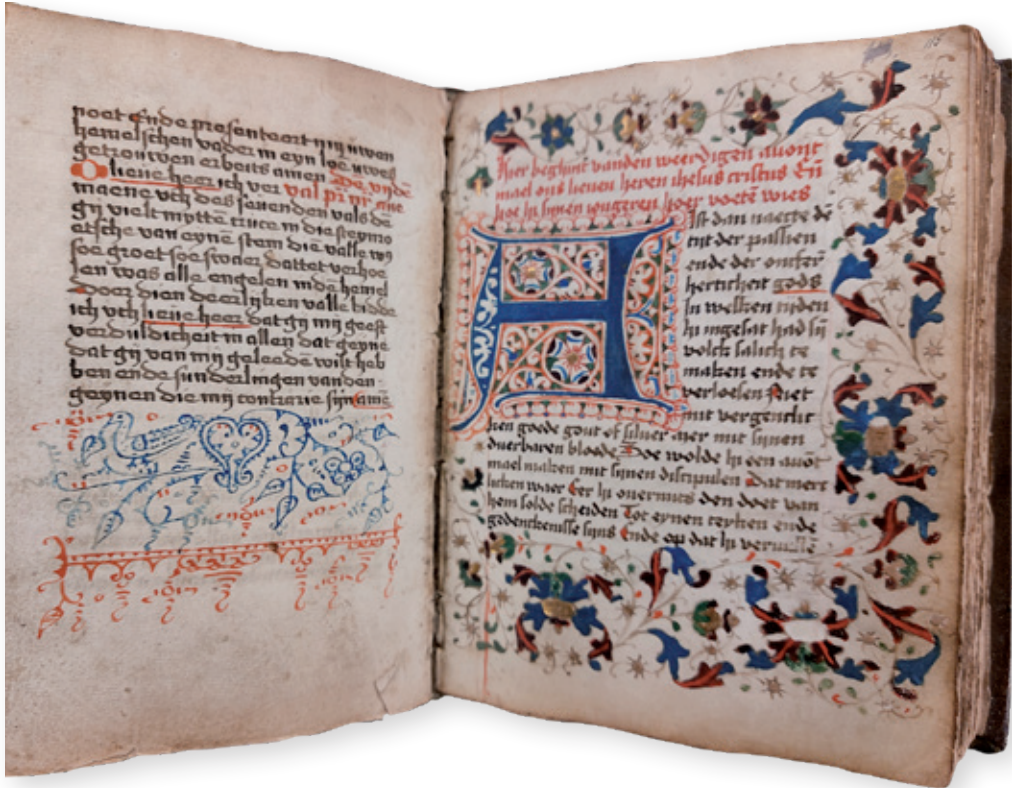 noet Ende presenteert mij uwen
hemelschen vader in eyn loe uwes
getrouwen erbeits amen De vijfde
O lieue heer ich ver val pr nr aue
maene vch des seuenden vals de
gij vielt mytten cruce in die steyn
etsche van eyne stem die valle was
soe groet soe swaer dattet verhoe
len was alle engelen in de hemel
Doer dien deerlijken valle bidde
ich vch lieue heer dat gij mij geeft
verduldicheit in allen dat geyne
dat gij van mij geleede wilt heb
ben ende sunderlingen van den
geynen die mij contrarie sijn ame
Hier beghint vanden weerdigen auont
mael ons lieuen heren ihesus cristus En
hoe hi sijnen iongeren hoer voete wies
A Ist dan naerre de
tijt der passien
ende der onster
herticheit gods
In welken tijden
hi ingesat had sijn
volck salich te
maken ende te
verloesen Niet
mit vergenclic
ken goede gout of siluer mer mit sijnen
duerbaren bloede Soe wolde hi een auot
mael maken mit sijnen discipulen
licken waer Eer hi ouermits den doet van
hem solde scheiden Tot eynen teyken ende
gedenckenisse sijns Ende op dat hi
115